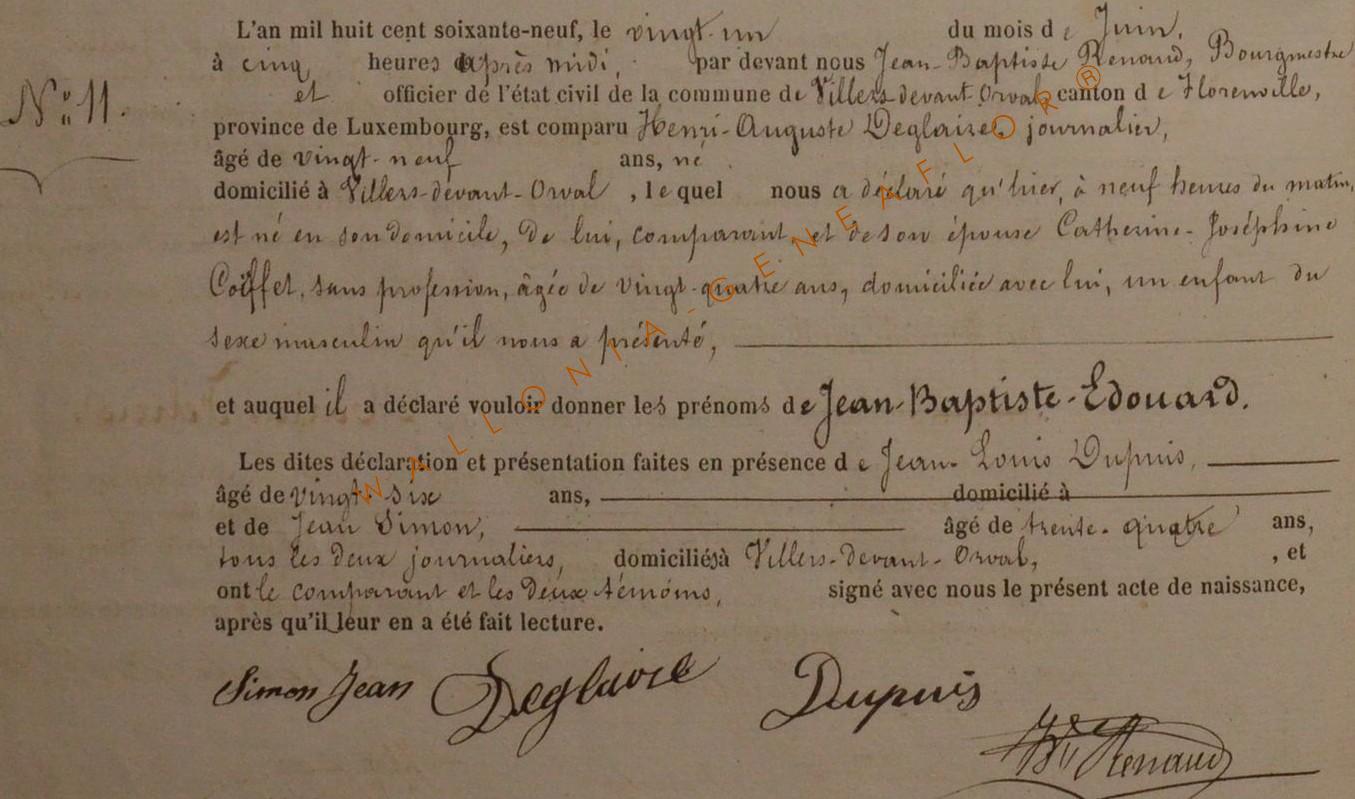 L'an mil huit cent soixante-neuf, le vingt-un du mois de Juin,
à cinq heures après midi, par devant nous Jean-Baptiste Renaud, Bourgmestre
N° 11. et officier de l'état civil de la commune de Villers-devant-Orval, canton de Florenville,
province de Luxembourg, est comparu Henri-Auguste Deglaire, journalier,
âgé de vingt-neuf ans, né
domicilié à Villers-devant-Orval, lequel nous a déclaré qu'hier, à neuf heures du matin,
est né en son domicile, de lui, comparant, et de son épouse Catherine-Joséphine
Coïffet, sans profession, âgée de vingt-quatre ans, domiciliée avec lui, un enfant du
sexe masculin qu'il nous a présenté,
et auquel il a déclaré vouloir donner les prénoms de Jean-Baptiste-Edouard.
Les dites déclaration et présentation faites en présence de Jean-Louis Dupuis,
âgé de vingt-six ans, domicilié à
et de Jean Simon, âgé de trente-quatre ans,
tous les deux journaliers, domiciliés à Villers-devant-Orval, , et
ont le comparant et les deux témoins, signé avec nous le présent acte de naissance,
après qu'il leur en a été fait lecture.
Simon Jean Deglaire Dupuis
JBte Renaud
WALLONIA-GENEAFLOR®